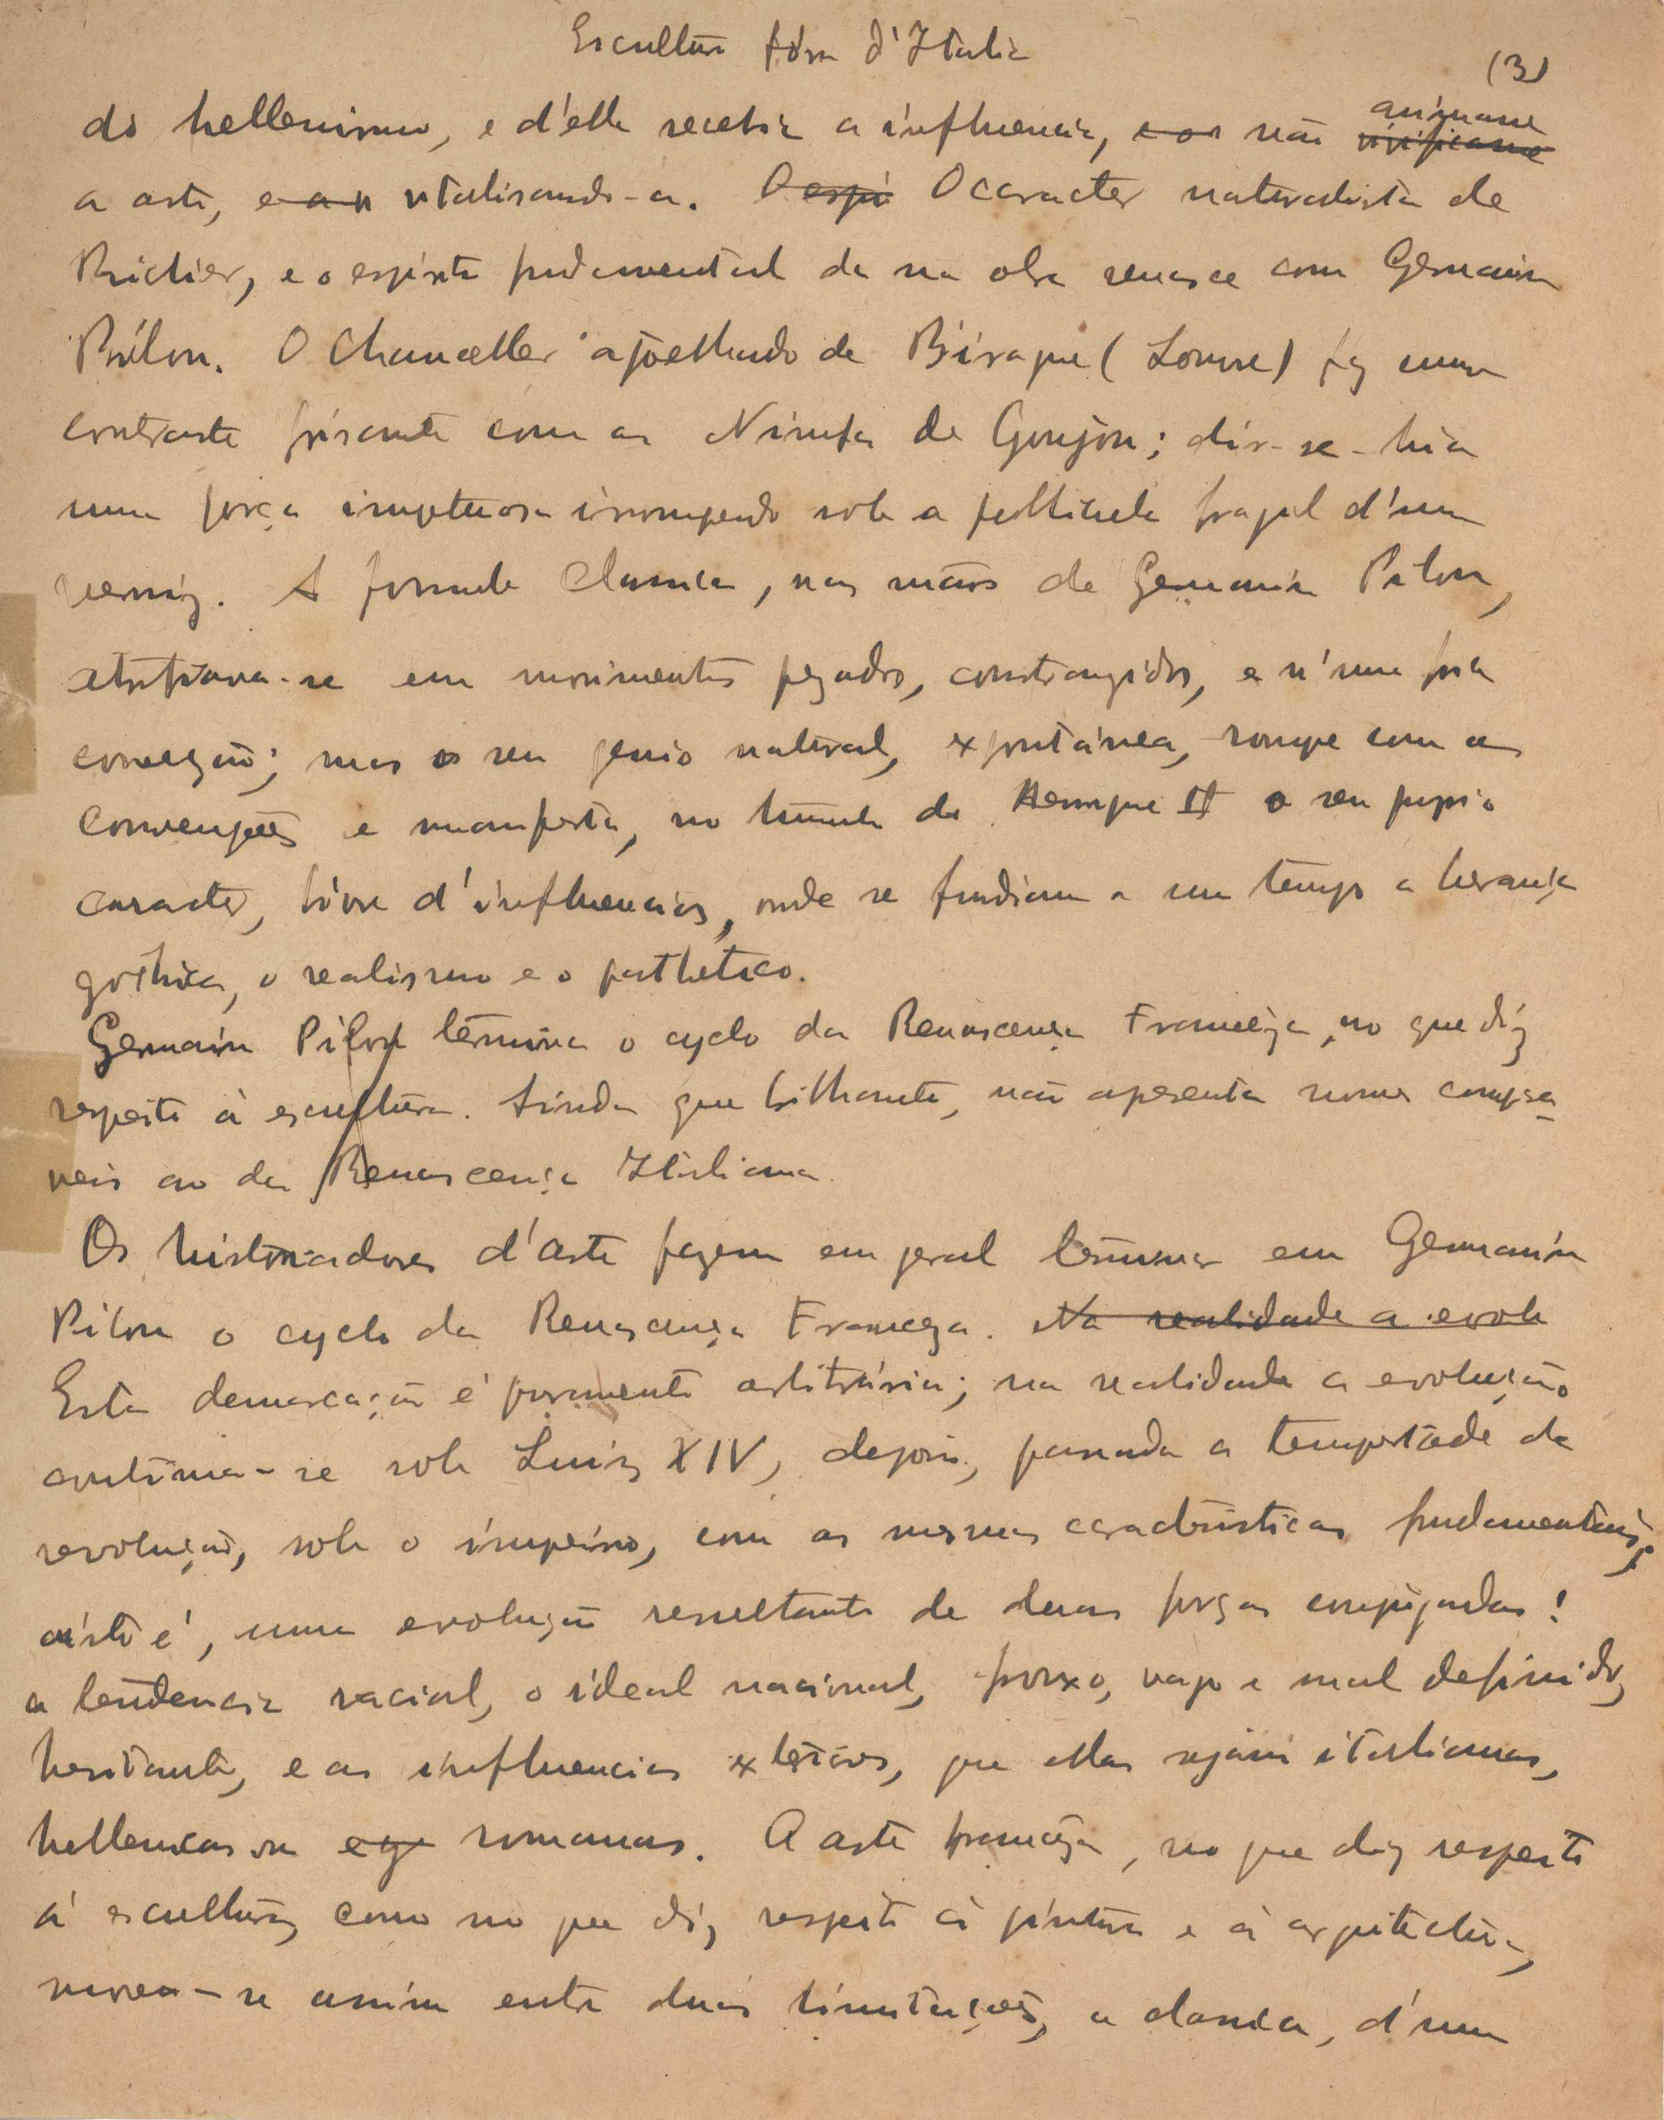 Escultura fóra d'Italia
(3)
do hellenismo, e d'elle recebia a influencia, e os não vivificasse animasse
a arte, e a n vitalisando-a. O espi O caracter naturalista de
Richier, e o espirito fundamental da sua obra renasce com Germain
Pilon. O Chanceller ajoelhado de Birague (Louvre) faz um
contraste frisante com as Ninfas de Goujon; dir-se-hia
uma força impetuosa irrompendo sob a pellicula fragil d'um
verniz. A formula classica, nas mãos de Germain Pilon,
atrofiava-se em movimentos pezados, constrangidos, e n'uma fria
; mas o seu genio natural, expontánea, rompe com as
convenções e manifesta, no tumulo de Henrique II o seu proprio
caracter, livre d'influencias, onde se fundiam a um tempo a herança
gothica, o realismo e o pathetico.
Germain Pilon termina o cyclo da Renascença Franceza, no que diz
respeito á escultura. Ainda que brilhante, não apresenta nomes compara
veis ao da Renascença Italiana
Os historiadores d'arte fazem em geral terminar em Germain
Pilon o cyclo da Renascença Franceza. Na realidade a evolu
Esta demarcação é puramente arbitrária; na realidade a evolução
continua-se sob Luiz XIV, depois, passada a tempestade da
revolução, sob o imperio, com as mesmas caracteristicas fundamentaes;
isto é, uma evolução resultante de duas forças conjugadas:
a tendencia racial, o ideal nacional, frouxo, vago e mal definido,
hesitante, e as influencias exteriores, que ellas sejam italianas,
hellenicas ou eg romanas. A arte franceza, no que diz respeito
á escultura, como no que diz respeito á pintura e á arquitectura,
move-se assim entre duas limitações, a classica, d'uma